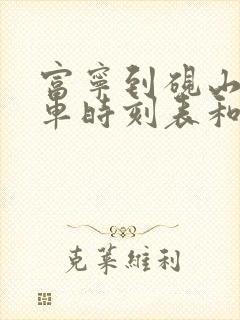 富寧到硯山
車時刻表和
克萊維利